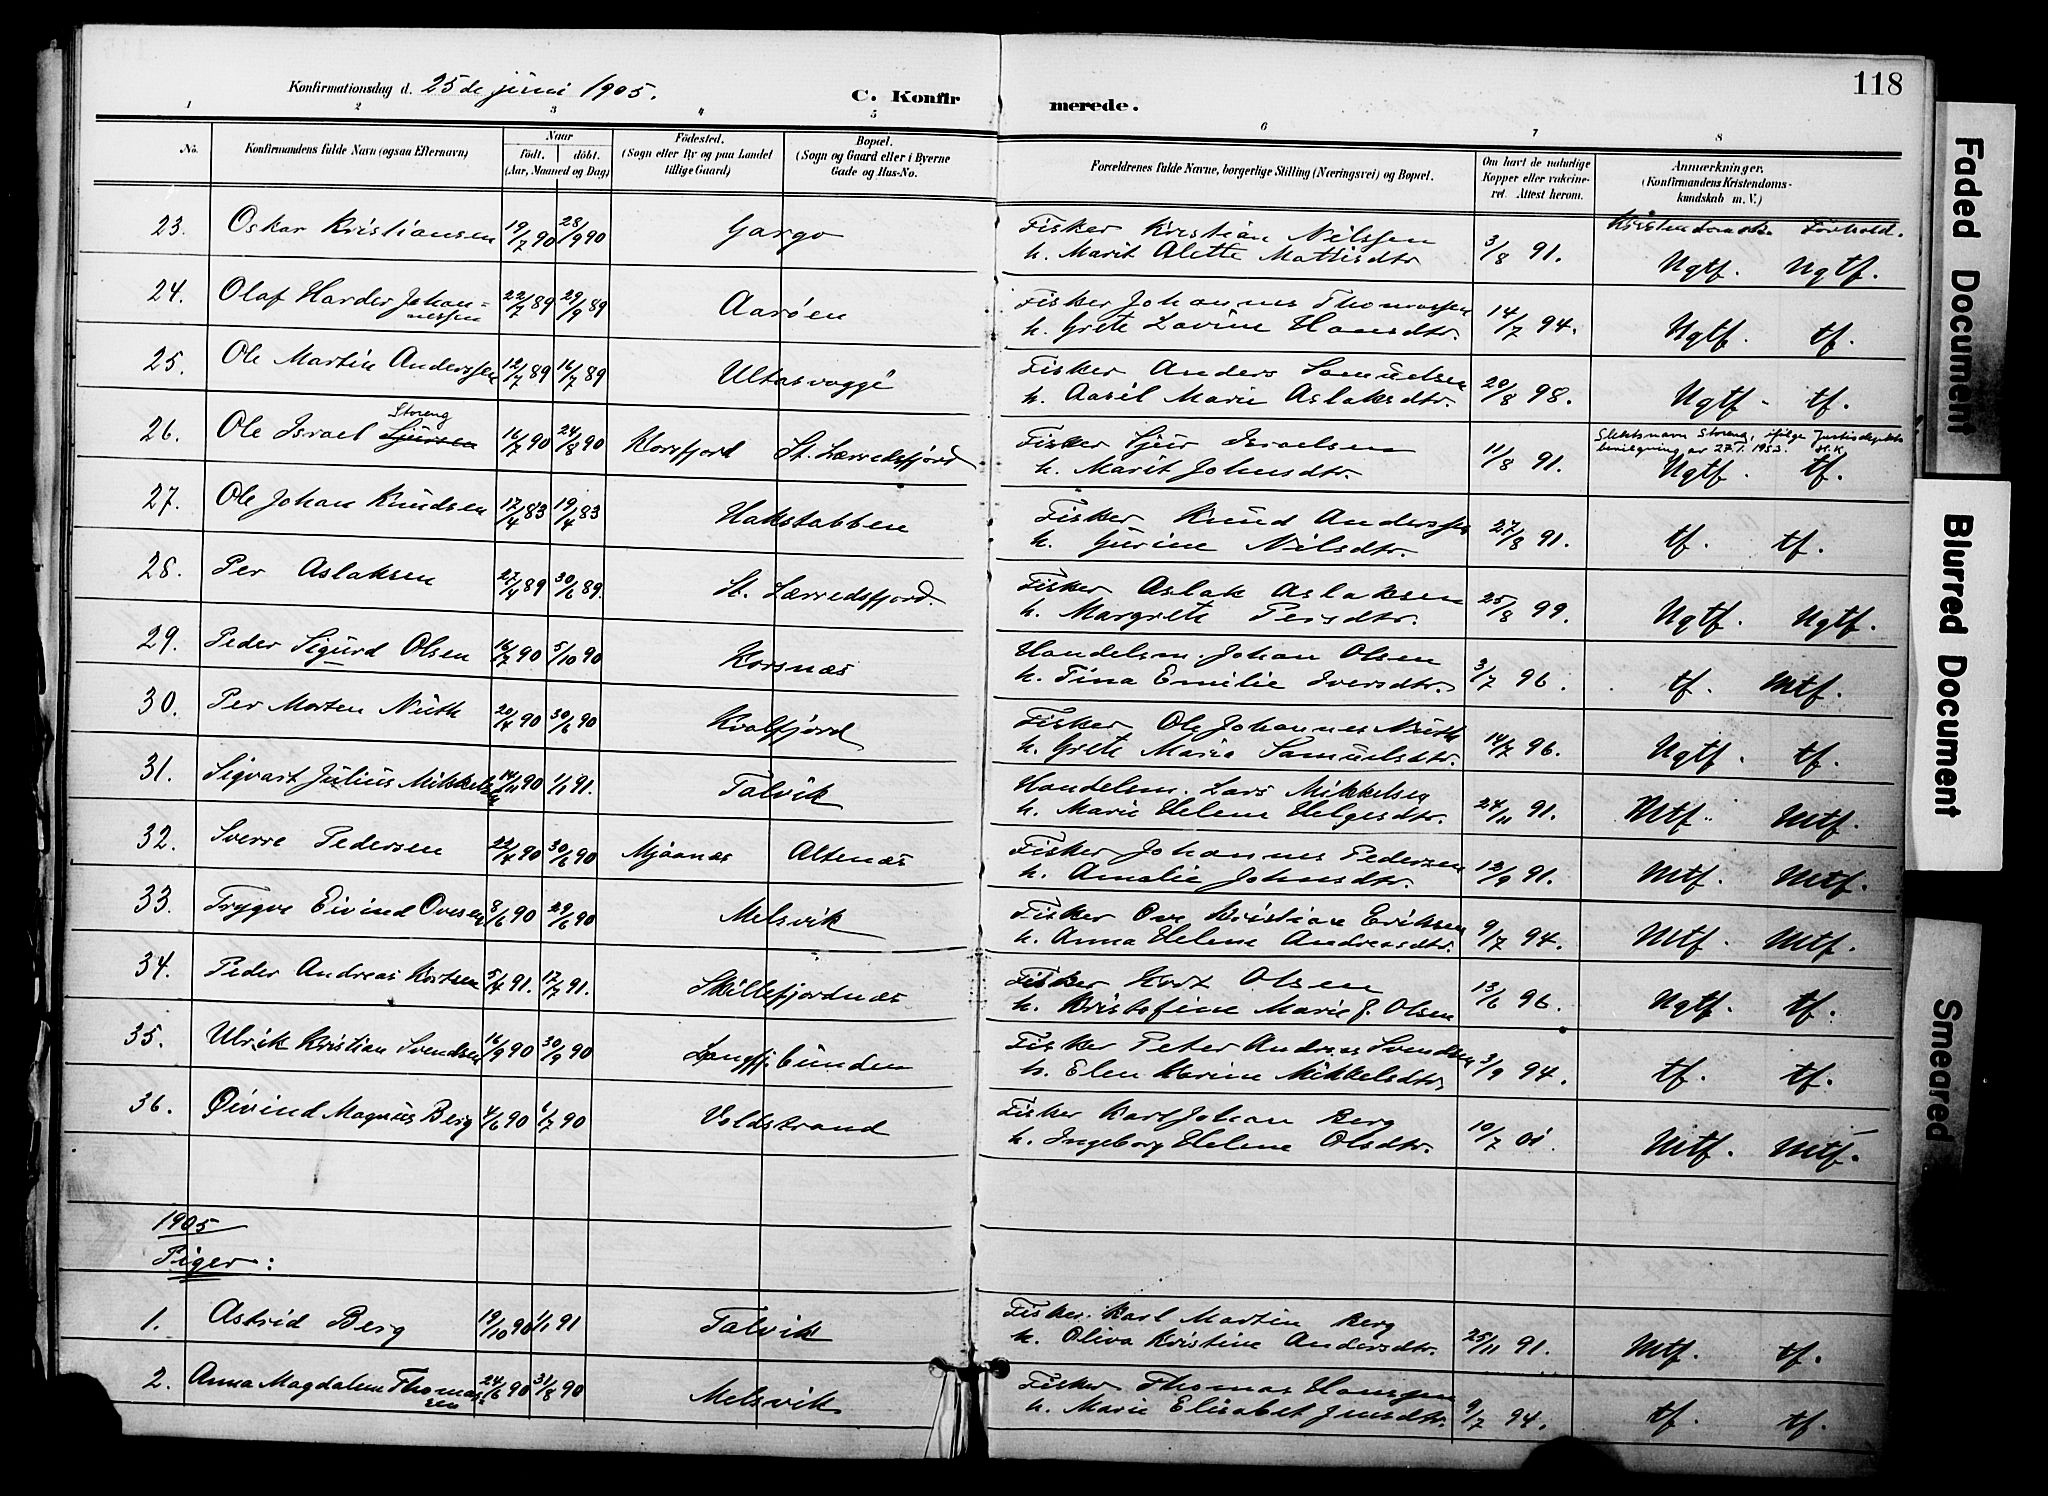 118
Konfirmationsdag d. 25de juni 1905.
C. Konfirmerede.
1 2 3 4 5 6 7 8
No. Konfirmandens fulde Navn (ogsaa Efternavn) Naar födt. döbt. (Aar, Maaned og Dag) Födested. (Sogn eller By og paa Landet tillige Gaard) Bopæl. (Sogn og Gaard eller i Byerne Gade og Hus-No. Forældrenes fulde Navne, borgerlige Stilling (Næringsvei) og Bopæl. Om havt de naturlige Kopper eller vakcineret. Attest herom. Anmærkninger. (Konfirmandens Kristendomskundskab m. V.)
Kristendomsk. Forhold.
23. Oskar Kristiansen 19/7 90 28/9 90 Gargo Fisker Kristian Nilssen 3/8 91. Ngtf. Ngtf.
h. Marit Alette Mattisdtr
24. Olaf Harder Johannessen 22/7 89 29/9 89 Aarøen Fisker Johannes Thomassen 14/7 94. Ngtf. tf.
h. Grete Lovine Hansdtr.
25. Ole Martin Anderssen 12/7 89 16/7 89 Ultasvaggi Fisker Anders Samuelsen 20/8 98. Ngtf. tf.
h. Aasil Marie Aslaksdtr.
26. Ole Israel Sjursen Storeng 16/7 90 24/8 90 Korsfjord St. Lerredsfjord Fisker Sjur Israelsen 11/8 91. Ngtf. tf.
h. Marit Johnsdtr.
Slektsnavn Storeng, ifølge Justisdeptets bevilgning av 27.1.1953. H.K.
27. Ole Johan Knudsen 17/4 83 19/4 83 Hakstabben Fisker Knud Anderssen 27/8 91. tf. tf.
h. Gurine Nilsdtr.
28. Per Aslaksen 27/4 89 30/6 89. St. Lerredsfjord. Fisker Aslak Aslaksen 25/8 99. Ngtf. Ngtf.
h. Margrete Persdtr.
29. Peder Sigurd Olsen 16/7 90 5/10 90 Korsnæs Handelsm. Johan Olsen 3/7 96. tf. Mtf.
h. Tina Emilie Iversdtr.
30. Per Morten Nuth 20/4 90 30/6 90 Kvalfjord Fisker Ole Johannes Nuth 14/7 96. Ngtf. tf.
h. Grete Maria Samuelsdtr.
31. Sigvart Julius Mikkelsen 14/11 90 1/1 91. Talvik Handelsm. Lars Mikkelsen 24/11 91. Mtf. Mtf.
h. Marie Helene Helgesdtr.
32. Sverre Pedersen 22/4 90 30/6 90 Mjaanæs Altenæs Fisker Johannes Pedersen 12/9 91. Mtf. Mtf.
h. Amalie Johnsdtr.
33. Trygve Eivind Ovesen 8/6 90 29/6 90 Melsvik Fisker Ove Kristian Eriksen 9/7 94. Mtf. Mtf.
h. Anna Helene Andreasdtr.
34. Peder Andreas Kortsen 5/4 91. 12/7 91. Skillefjordnæs Fisker Kort Olsen 13/6 96. Ngtf. tf.
h. Kristofine Marie J. Olsen
35. Ulrik Kristian Svendsen 16/9 90 30/9 90 Langfj. bunden Fisker Peter Andreas Svendsen 3/9 94. tf. tf.
h. Elen Karine Mikkelsdtr
36. Øivind Magnus Berg 4/6 90 6/7 90 Voldstrand Fisker Karl Johan Berg 10/7 01 Mtf. Mtf.
h. Ingeborg Helene Olsdtr.
1905
Piger:
1. Astrid Berg 19/10 90 1/1 91 Talvik Fisker. Karl Martin Berg 25/11 91. Mtf. tf.
h. Oliva Kristine Andersdtr.
2. Anna Magdalene Thomassen 24/6 90 31/8 90 Melsvik Fisker Thomas Hanssen 9/7 94. tf. tf.
h. Marie Elisabet Jensdtr.
Faded Document
Blurred Document
Smeared